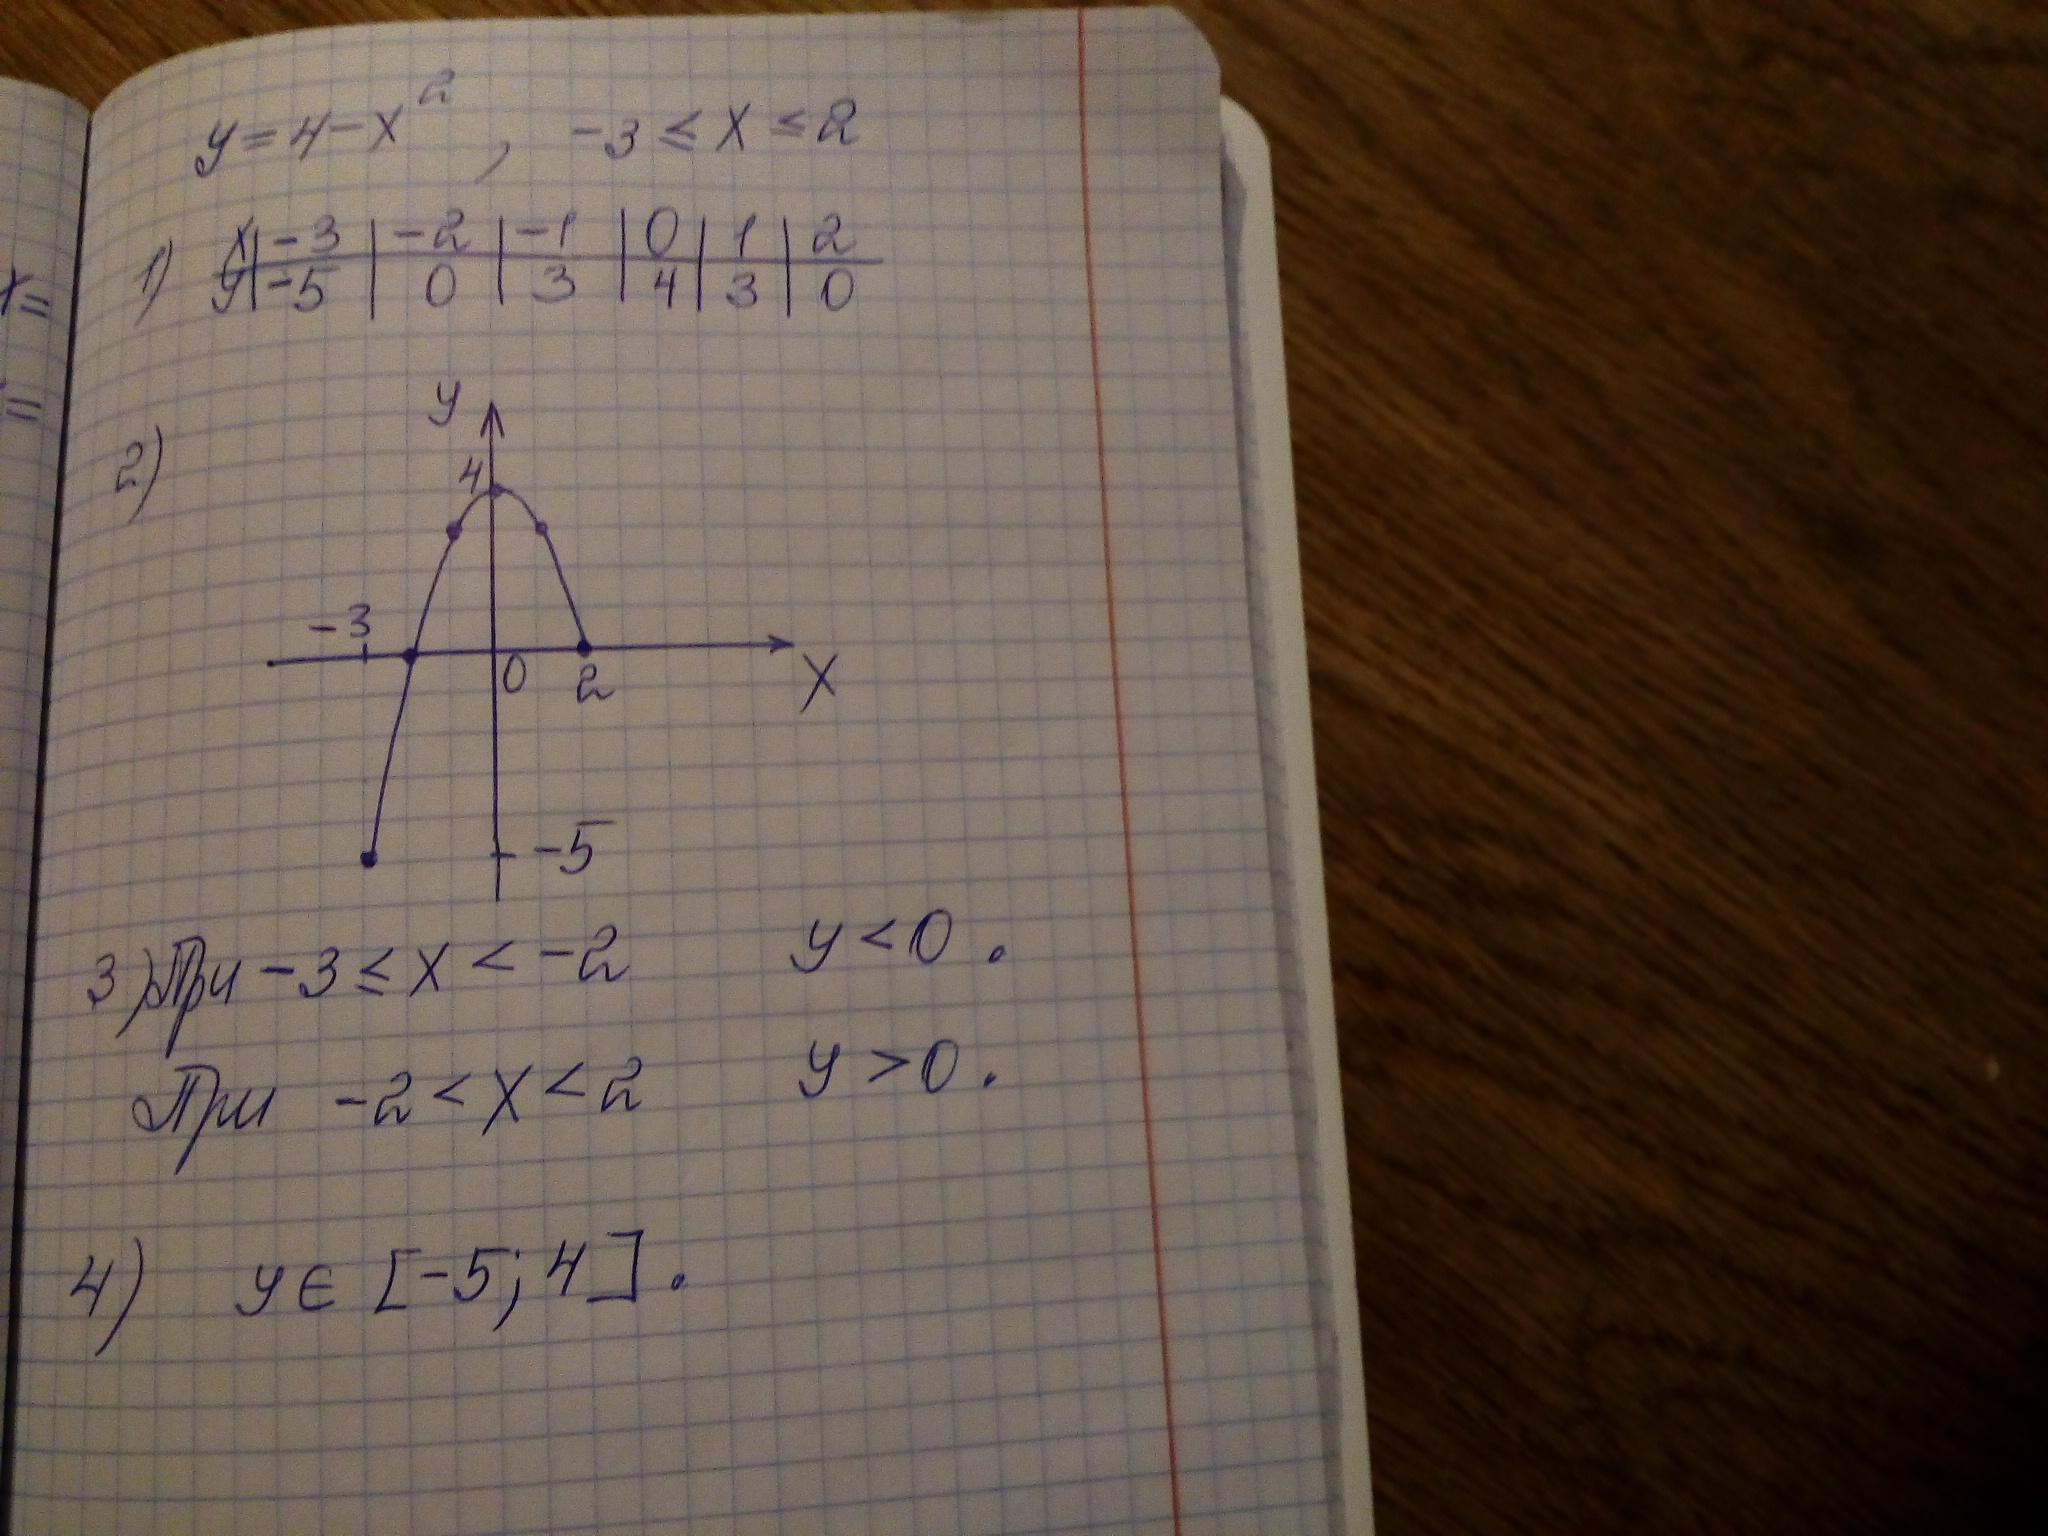 y = 4 - x², -3 ≤ x ≤ 2
1) x | -3 | -2 | -1 | 0 | 1 | 2
y | -5 | 0 | 3 | 4 | 3 | 0
2)
y
4
-3
0
2
x
-5
3) При -3 ≤ x < -2 y < 0.
При -2 < x < 2 y > 0.
4) y ∈ [-5; 4].